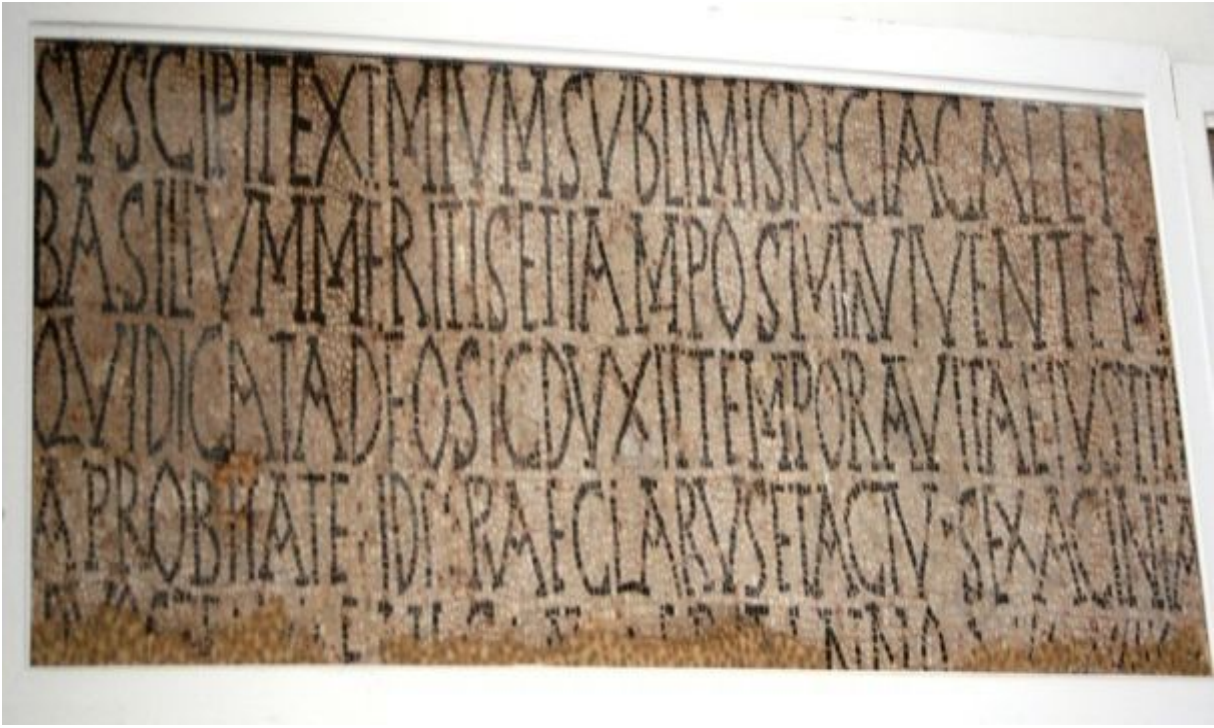 SVSCIPIT EXIMIVM SVBLIMIS REGIA CAELI
BASILIVM MERITIS ETIAM POST MVN VIVENTEM
QVI DICATA DEO SIC DVXIT TEMPORA VITAE IVSTITI
A PROBITATE ID PRAECLARVS ET ACTV SEXAGINTA